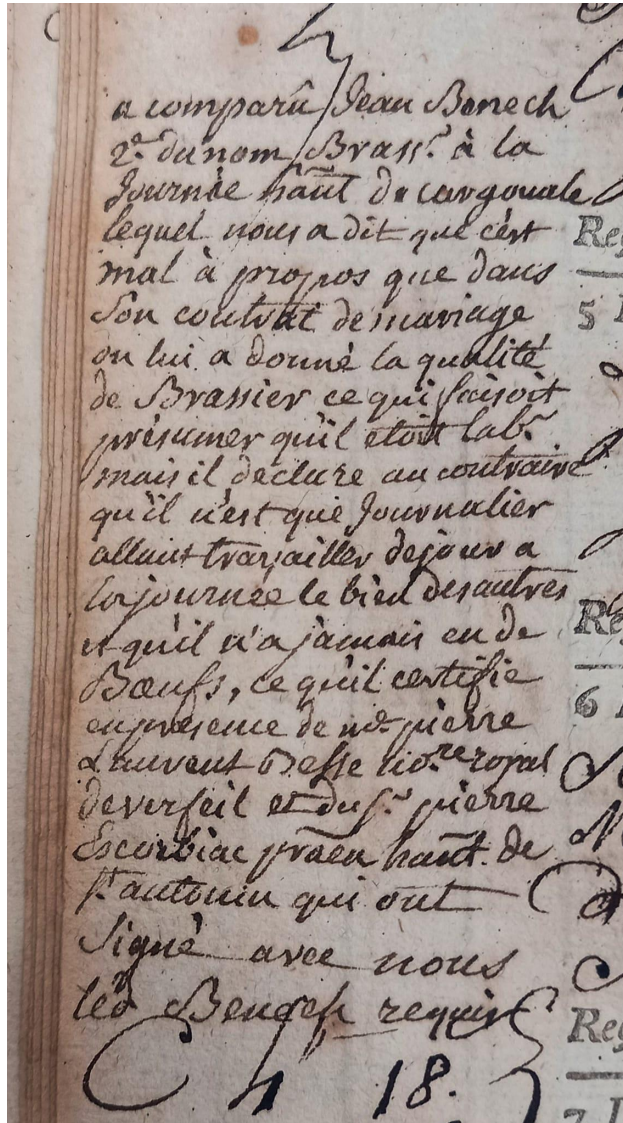 a comparû Jean Benech
2e. du nom Brass.r à la
Journée haut. de cargouale
lequel nous a dit que c'est
mal à propos que dans
son contrat de mariage
on lui a donné la qualité
de Brassier ce qui faisoit
présumer qu'il etoit lab.r
mais il déclare au contraire
qu'il n'est que Journalier
allant travailler de jour a
la journée le bien des autres
et qu'il n'a jamais eu de
Bœufs, ce qu'il certifie
en presence de me. pierre
Laurent Desse no.re royal
de verfeil et du s.r pierre
Escorbiac haut. de
s.t antonin qui ont
signé avec nous
led Benech requis
18.
Re
5
Re
6
Re
7